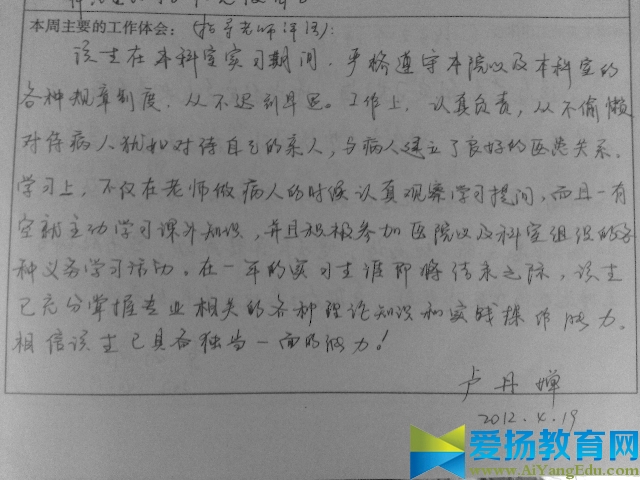 本周主要的工作体会：（指导老师评语）：
该生在本科室实习期间，严格遵守本院以及本科室的
各种规章制度，从不迟到早退。工作上，认真负责，从不偷懒
对待病人犹如对待自己的亲人，与病人建立了良好的医患关系。
学习上，不仅在老师做病人的时候认真观察学习提问，而且一有
空就主动学习课外知识，并且积极参加医院以及科室组织的各
种义务学习活动。在一年的实习生涯即将结束之际，该生
已充分掌握专业相关的各种理论知识和实践操作能力。
相信该生已具备独当一面的能力！
卢丹婵
2012.4.19
爱扬教育网
www.AiYangEdu.com